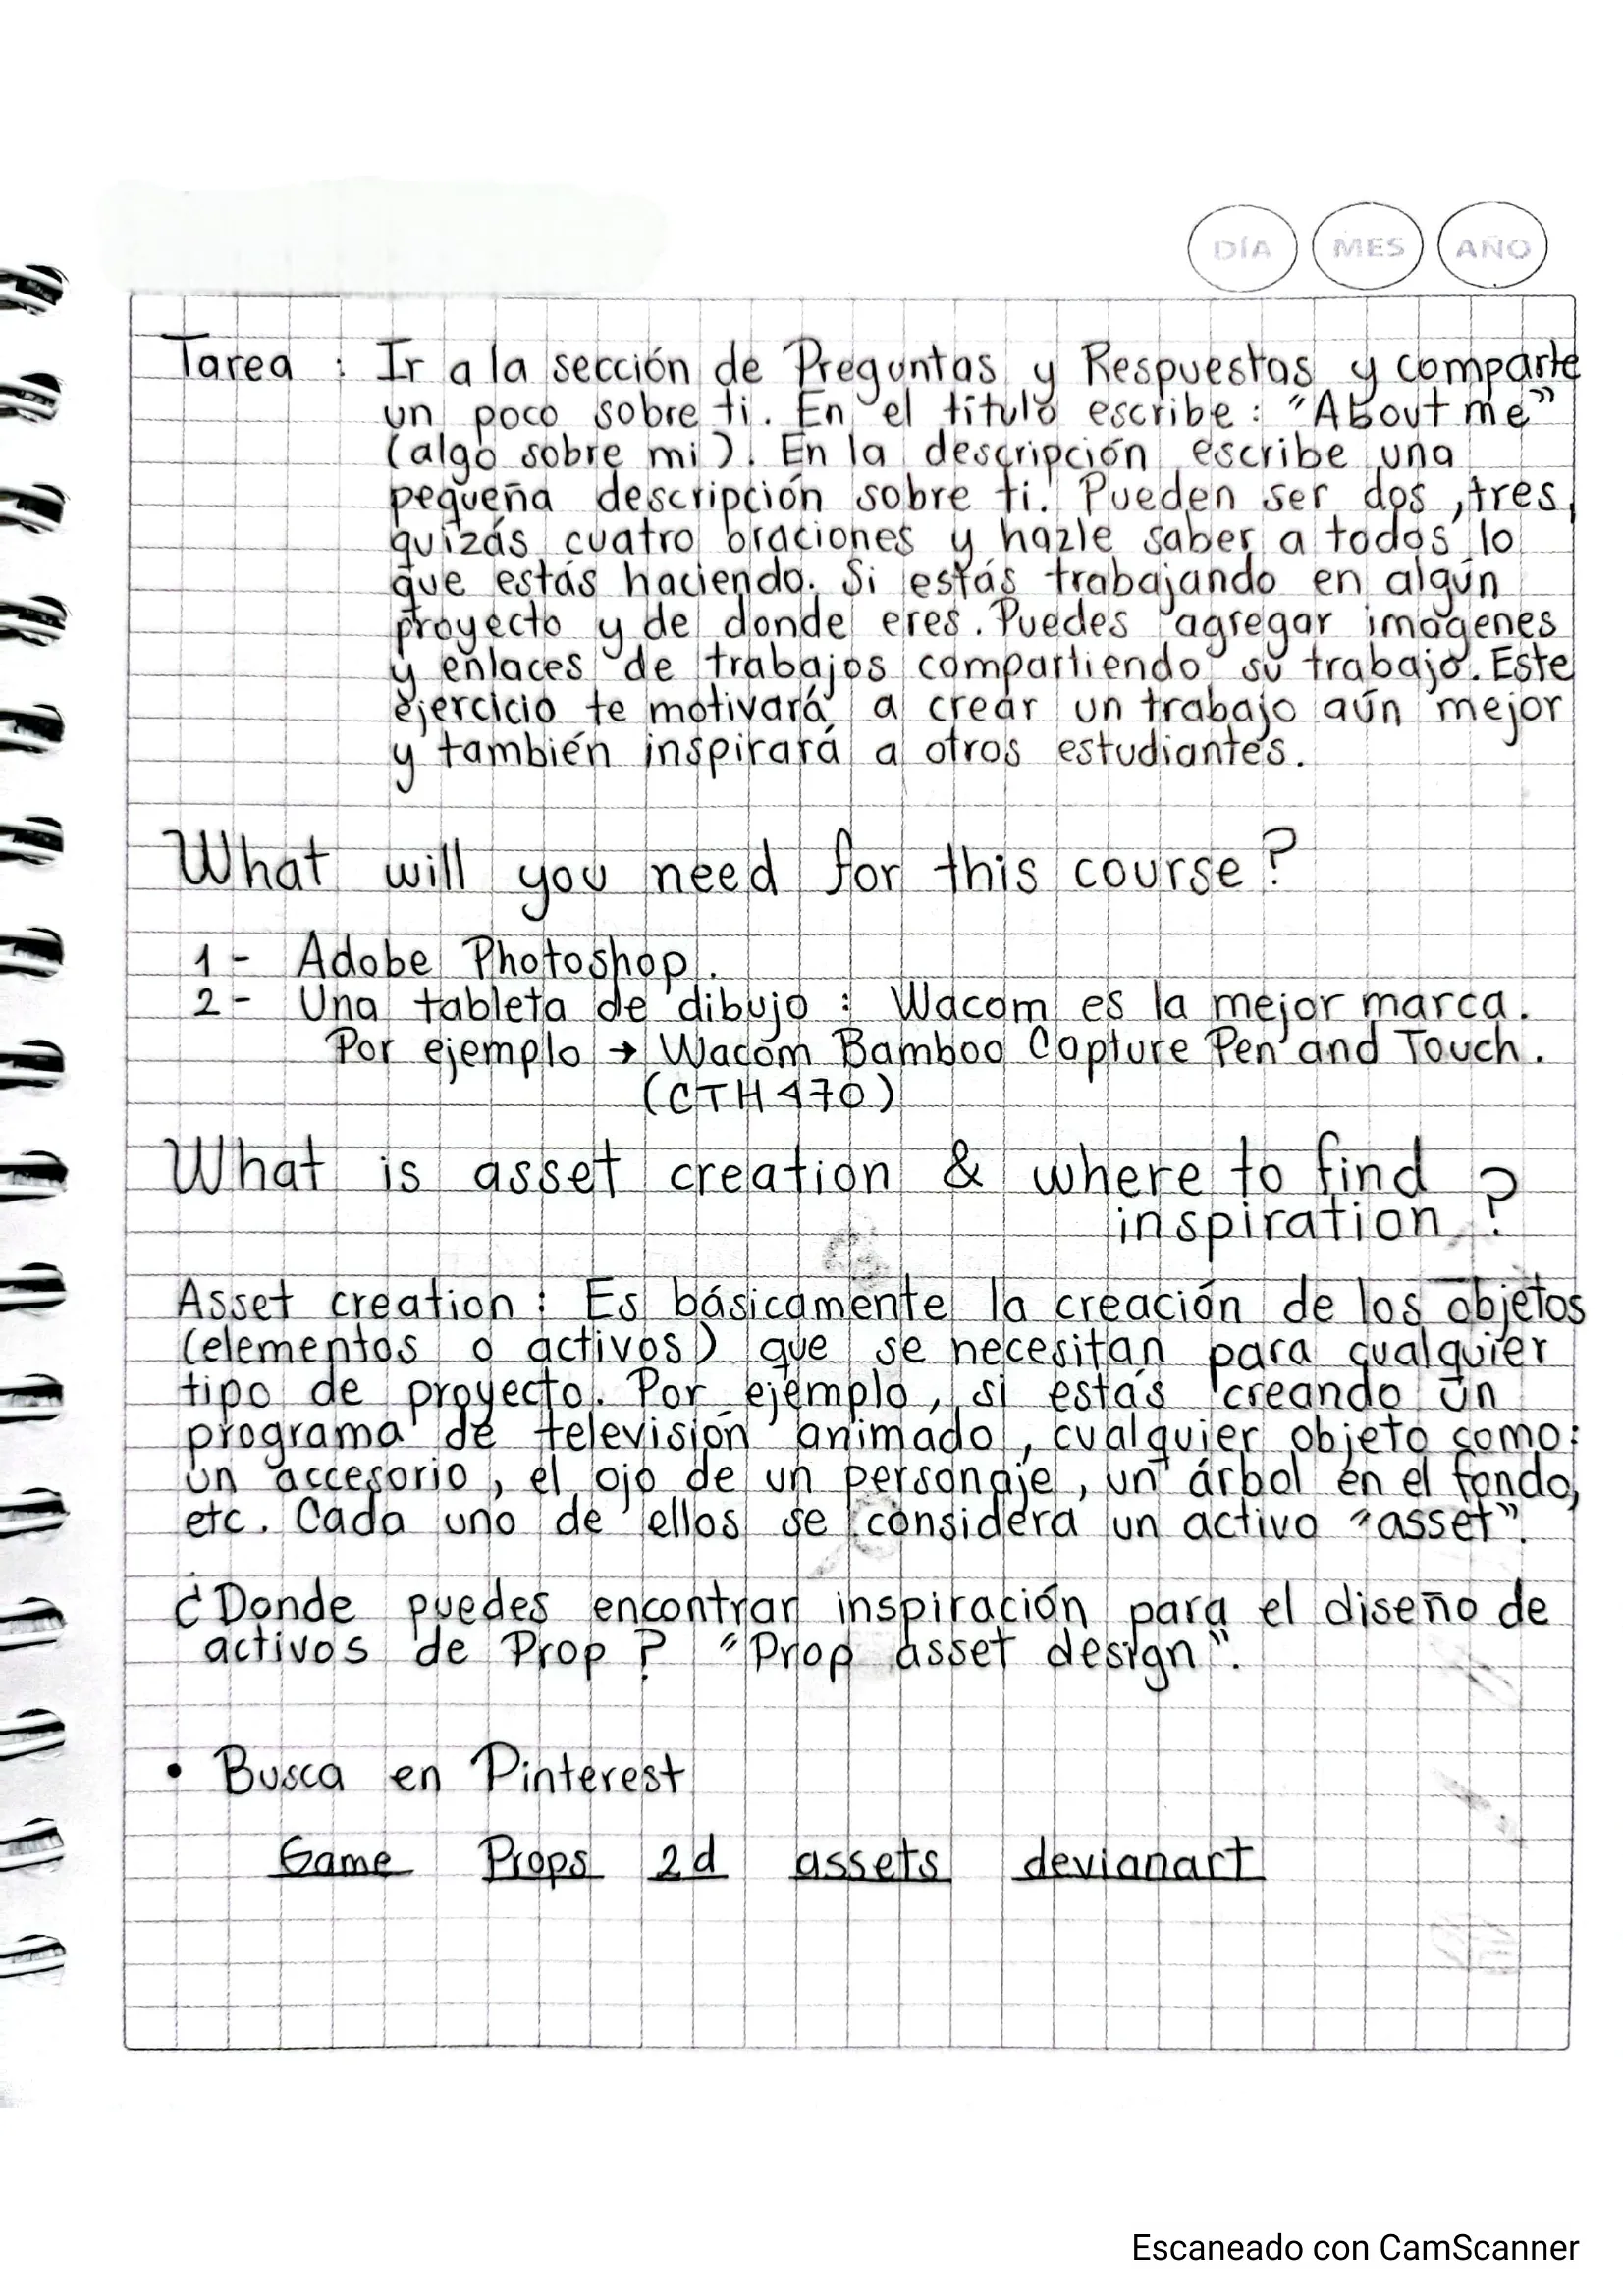 DÍA MES AÑO
Tarea : Ir a la sección de Preguntas y Respuestas y comparte
un poco sobre ti. En el título escribe: "About me"
(algo sobre mi). En la descripción escribe una
pequeña descripción sobre ti. Pueden ser dos, tres,
quizás cuatro oraciones y hazle saber a todos lo
que estás haciendo. Si estás trabajando en algún
proyecto y de donde eres. Puedes agregar imágenes
y enlaces de trabajos compartiendo su trabajo. Este
ejercicio te motivará a crear un trabajo aún mejor
y también inspirará a otros estudiantes.
What will you need for this course?
1- Adobe Photoshop.
2- Una tableta de dibujo : Wacom es la mejor marca.
Por ejemplo → Wacom Bamboo Capture Pen and Touch.
(CTH470)
What is asset creation & where to find
inspiration ?
Asset creation : Es básicamente la creación de los objetos
(elementos o activos) que se necesitan para cualquier
tipo de proyecto. Por ejemplo, si estás creando un
programa de televisión animado, cualquier objeto como:
un accesorio, el ojo de un personaje, un árbol en el fondo,
etc. Cada uno de ellos se considera un activo "asset".
¿Donde puedes encontrar inspiración para el diseño de
activos de Prop? "Prop asset design".
• Busca en Pinterest
Game Props 2d assets devianart
Escaneado con CamScanner